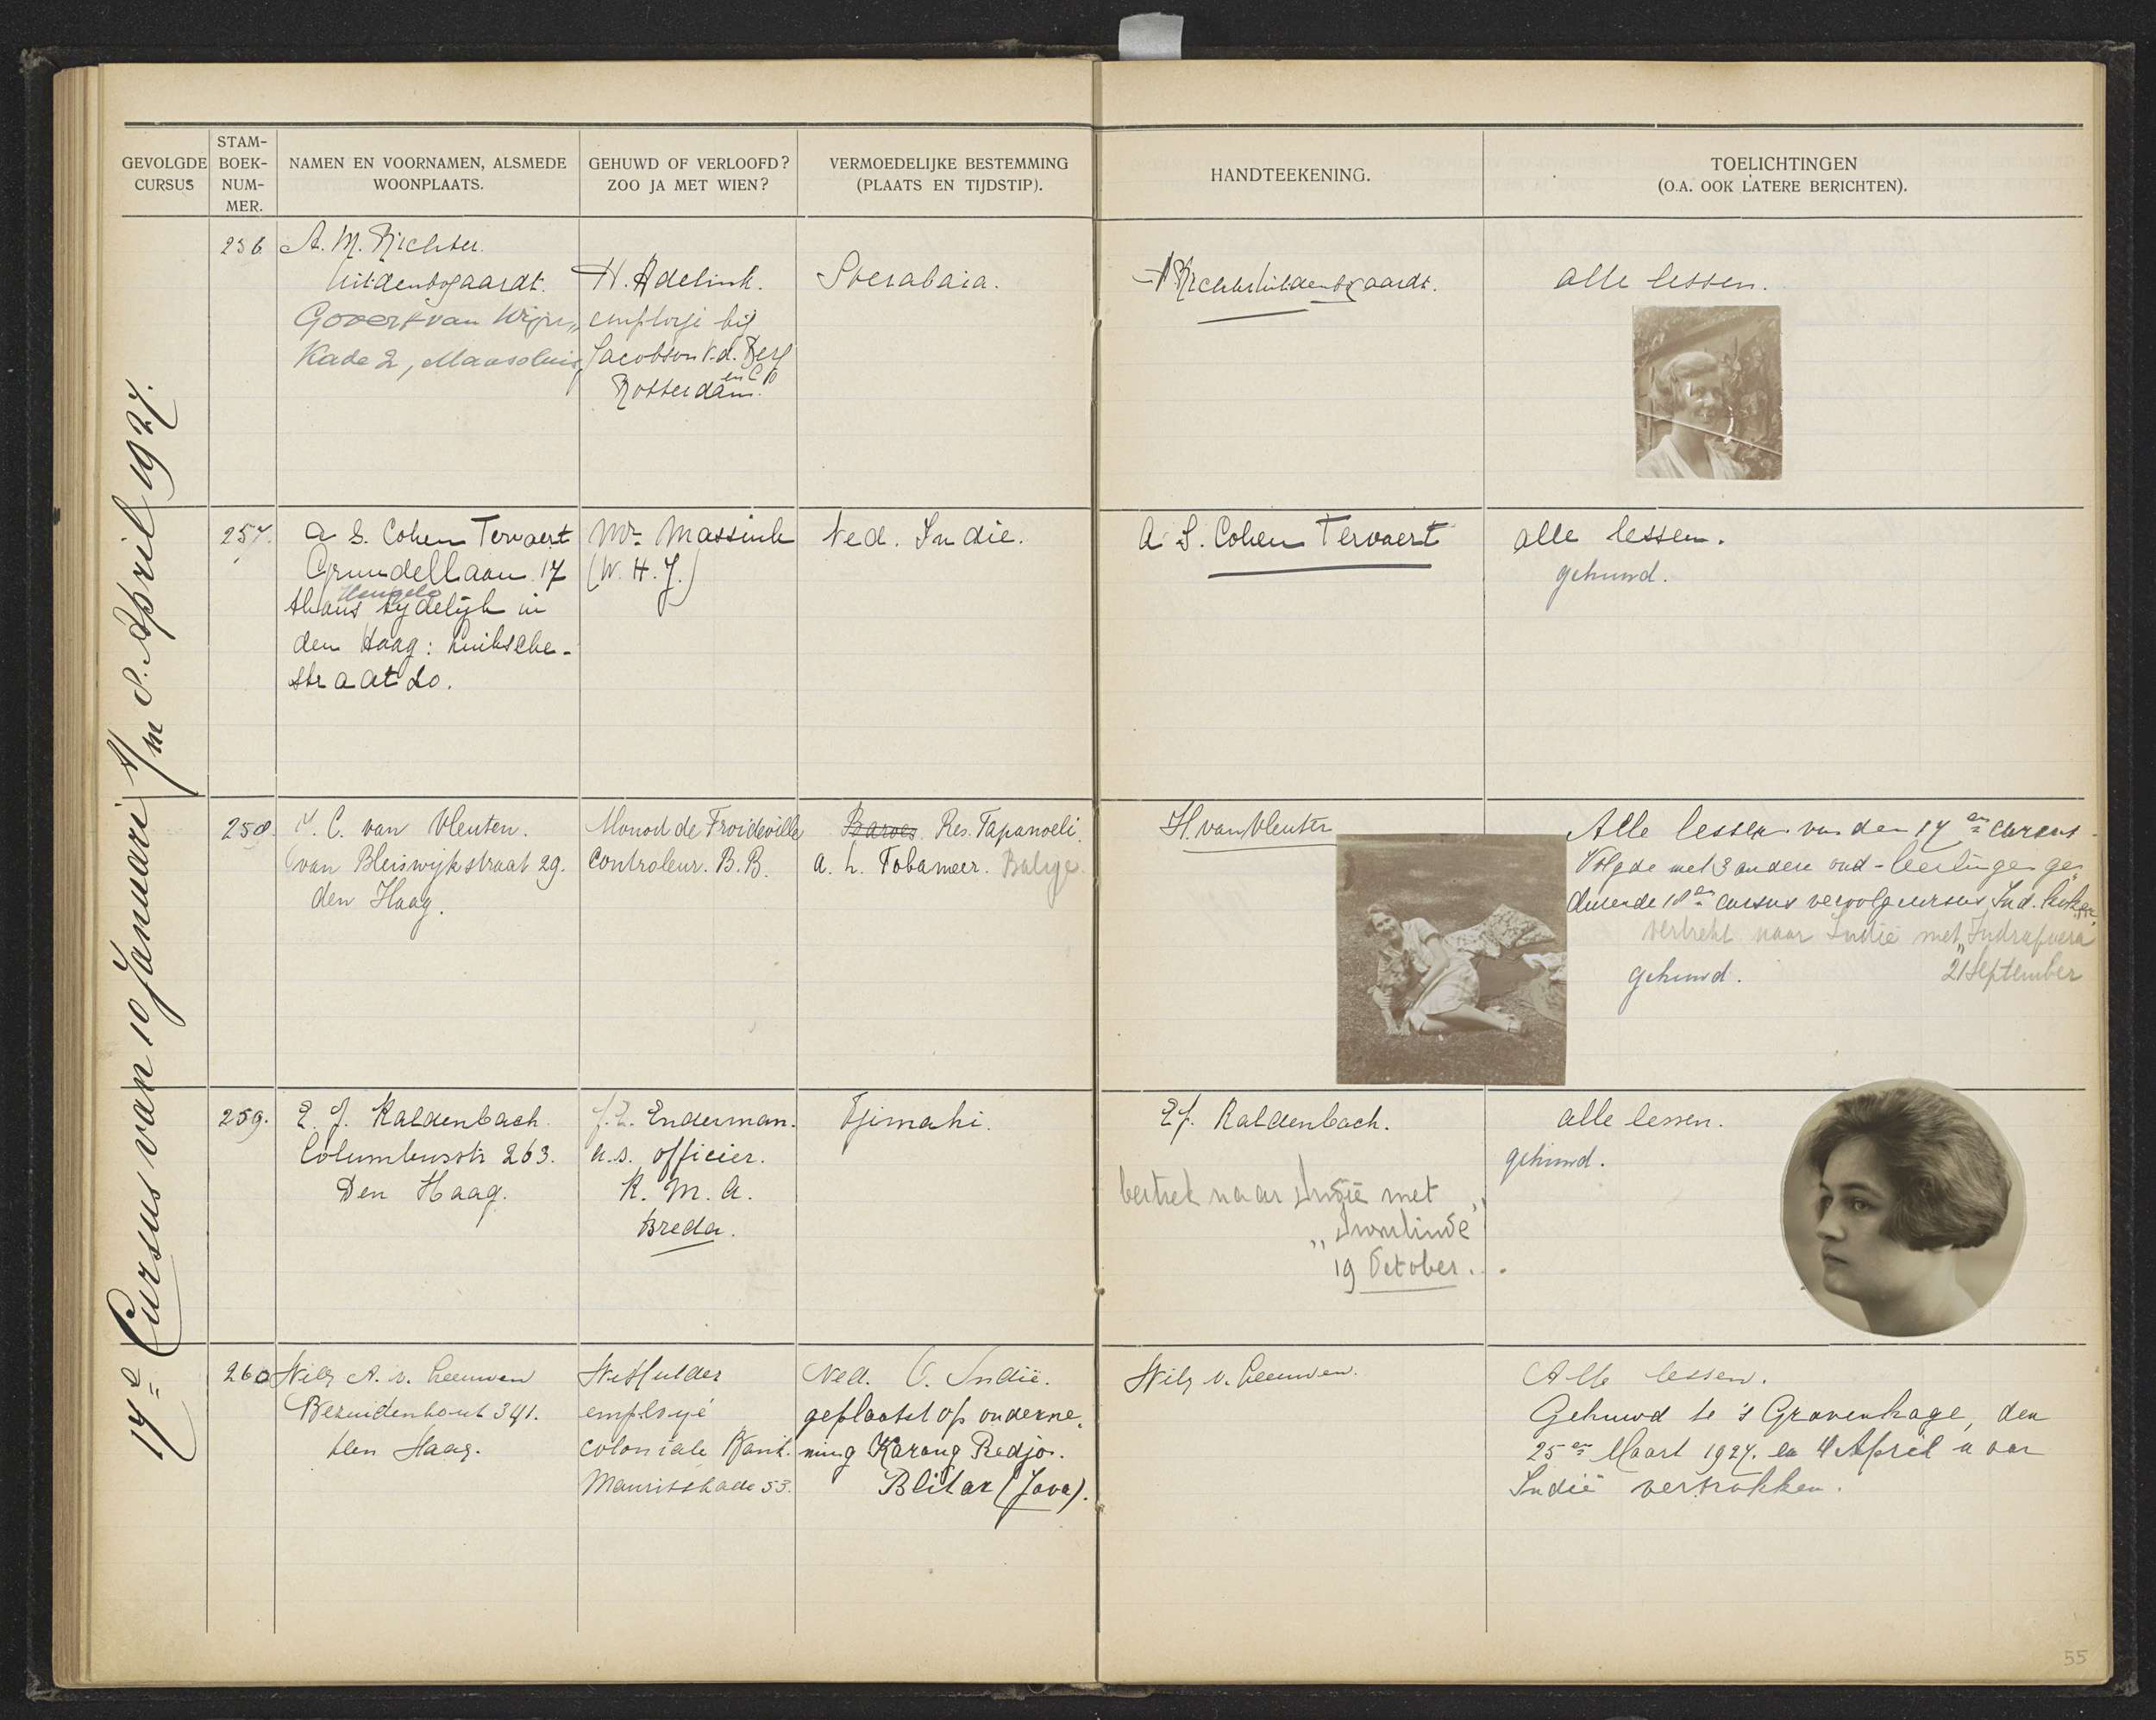 GEVOLGDE CURSUS
STAM-BOEK-NUM-MER.
NAMEN EN VOORNAMEN, ALSMEDE WOONPLAATS.
GEHUWD OF VERLOOFD? ZOO JA MET WIEN?
VERMOEDELIJKE BESTEMMING (PLAATS EN TIJDSTIP).
HANDTEEKENING.
TOELICHTINGEN
(O.A. OOK LATERE BERICHTEN).
17e Cursus van 10 Januari t/m 8 April 1927.
256
A. M. Richter
Uitdenbogaardt.
Govert van Wijn„
Kade 2, Maassluis
H. Adelink.
employé bij
Jacobson v.d. Berg
en Co
Rotterdam.
Soerabaia.
A Richter Uitdenbogaardt.
alle lessen.
257.
A S. Cohen Tervaert
Grundellaan 17
Hengelo
thans tydelijk in
den Haag:
straat 20.
Mr. Massink
(W. H. J.)
Ned. Indie.
A S. Cohen Tervaert
alle lessen.
gehuwd.
258.
C. van Vleuten.
van Bleiswijkstraat 29.
den Haag.
Monod de Froideville
Controleur. B.B.
Baroes. Res. Tapanoeli.
a. h. Tobameer. Balige.
H. van Vleuten
Alle lessen van den 17en cursus.
Volgde met 3 andere oud-leerlingen ge„
durende 18en cursus vervolgcursus Ind. koken
vertrekt naar Indië met „Indrapoera"
gehuwd.
21 September
259.
E. J. Kaldenbach.
Columbusstr 263.
Den Haag.
J. L. Enderman.
a.s. officier.
K. M. A.
Breda.
Tjimahi.
E J. Kaldenbach.
vertrek naar Indië met
„Insulinde"
19 October.
alle lessen.
gehuwd.
260
Wily A. v. Leeuwen
Bezuidenhout 341.
den Haag.
employé
Coloniale Bank.
Mauritskade 53.
Ned. O. Indië.
geplaatst op onderne„
ming Karang Redjo.
Blitar (Java).
Wily v. Leeuwen.
Alle lessen.
Gehuwd te 's Gravenhage, den
25en Maart 1927. en 4 April naar
Indië vertrokken.
55